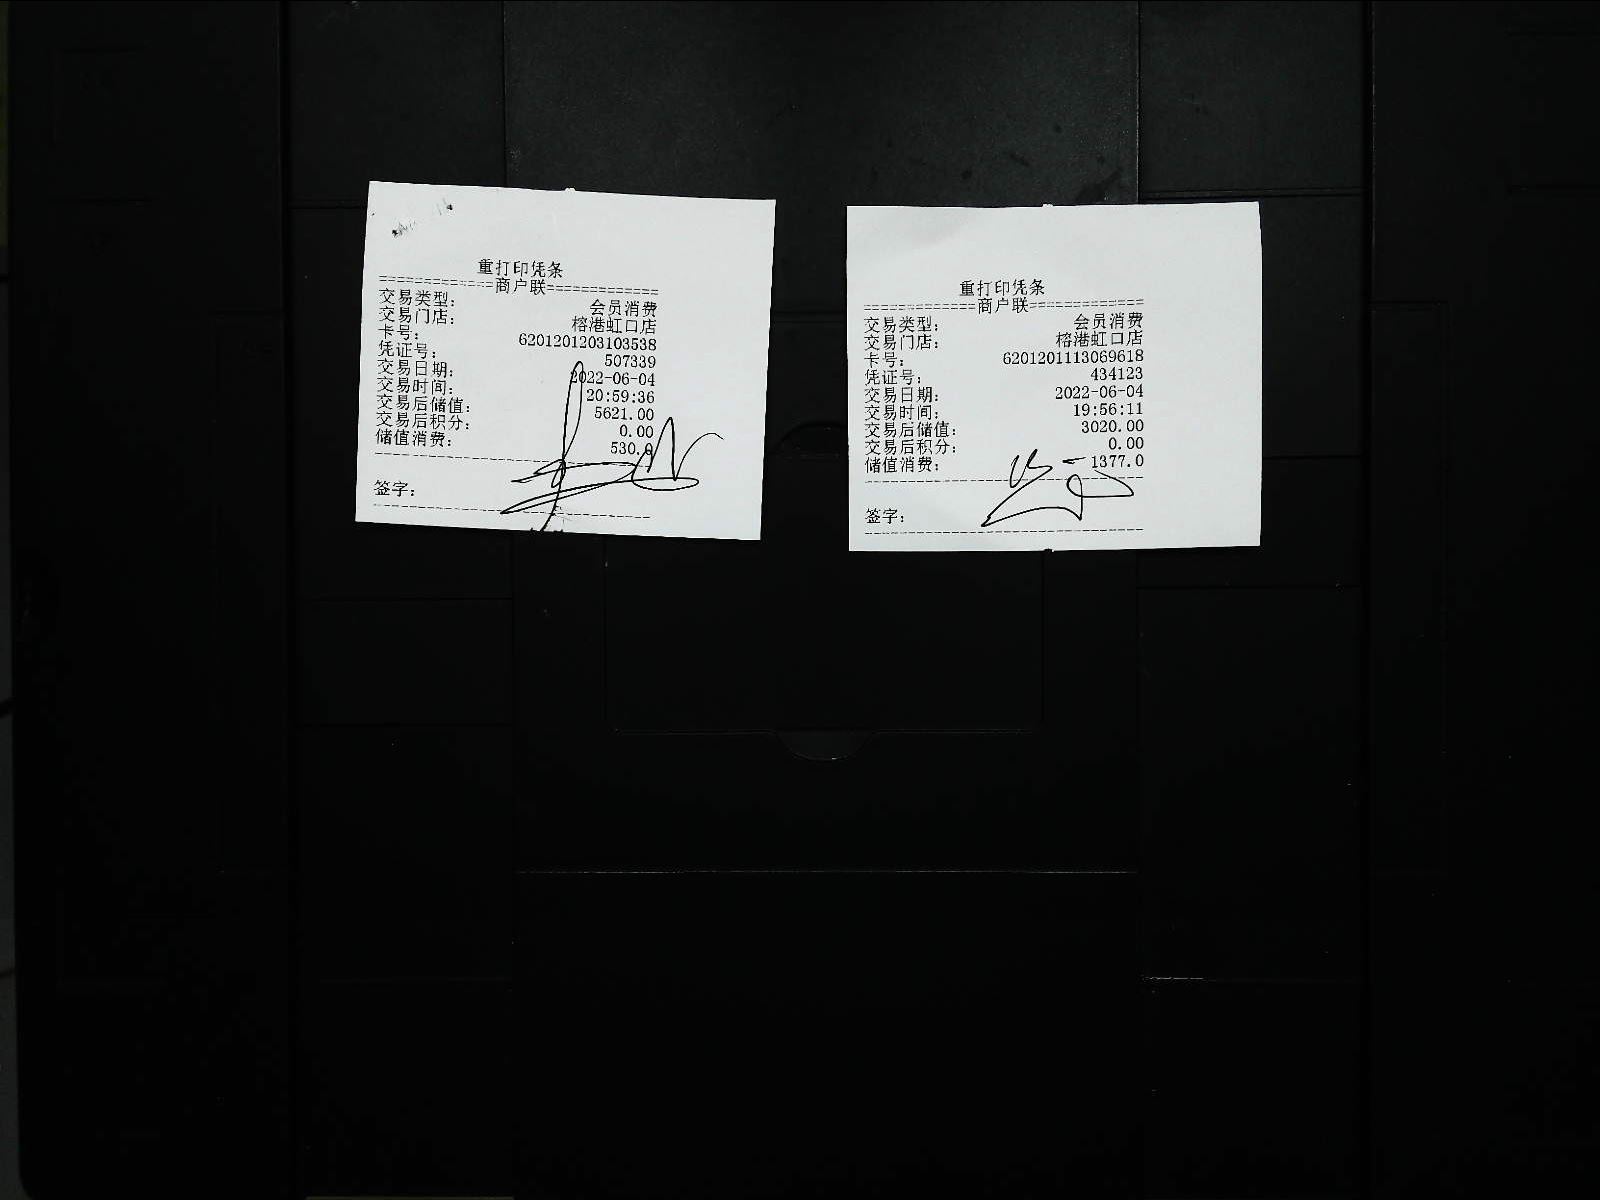 重打印凭条
=============商户联=============
交易类型: 会员消费
交易门店: 榕港虹口店
卡号: 6201201203103538
凭证号: 507339
交易日期: 2022-06-04
交易时间: 20:59:36
交易后储值: 5621.00
交易后积分: 0.00
储值消费: 530.0
签字:
重打印凭条
=============商户联=============
交易类型: 会员消费
交易门店: 榕港虹口店
卡号: 6201201113069618
凭证号: 434123
交易日期: 2022-06-04
交易时间: 19:56:11
交易后储值: 3020.00
交易后积分: 0.00
储值消费: 1377.0
签字: